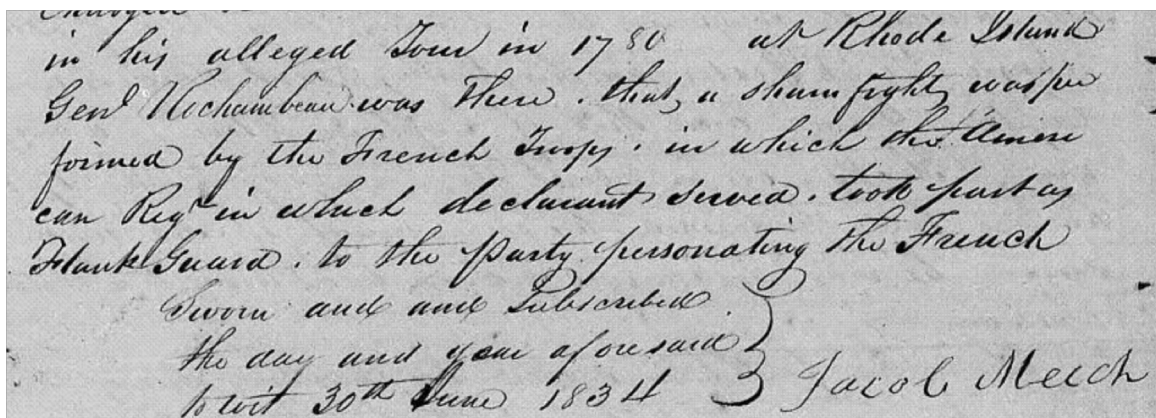 in his alleged Tour in 1780 at Rhode Island
Genl Rochambeau was there. that, a sham fight, was per
formed by the French Troops. in which the Ameri
can Regt in which declarant served. took part as
Flank Guard. to the Party personating the French
Sworn and and Subscribed
the day and year aforesaid
to wit 30th June 1834
Jacob Meech